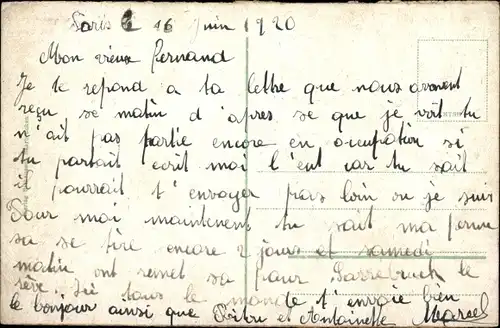 Paris le 16 Juin 1920
Mon vieux Fernand
Je te repond a ta lettre que nous avonent
reçu se matin d'apres se que je voit tu
n'ait pas partie encore en occupation si
tu partait ecrit moi l'ent car tu sait
il pourrait t'envoyer pas loin ou je suis
Pour moi maintenent tu sait ma perme
sa se tire encore 2 jours et samedi
matin ont remet sa pour Sarrebruck le
reve. Ici tous le monde t'envoie bien
le bonjour ainsi que et Antoinette Marcel